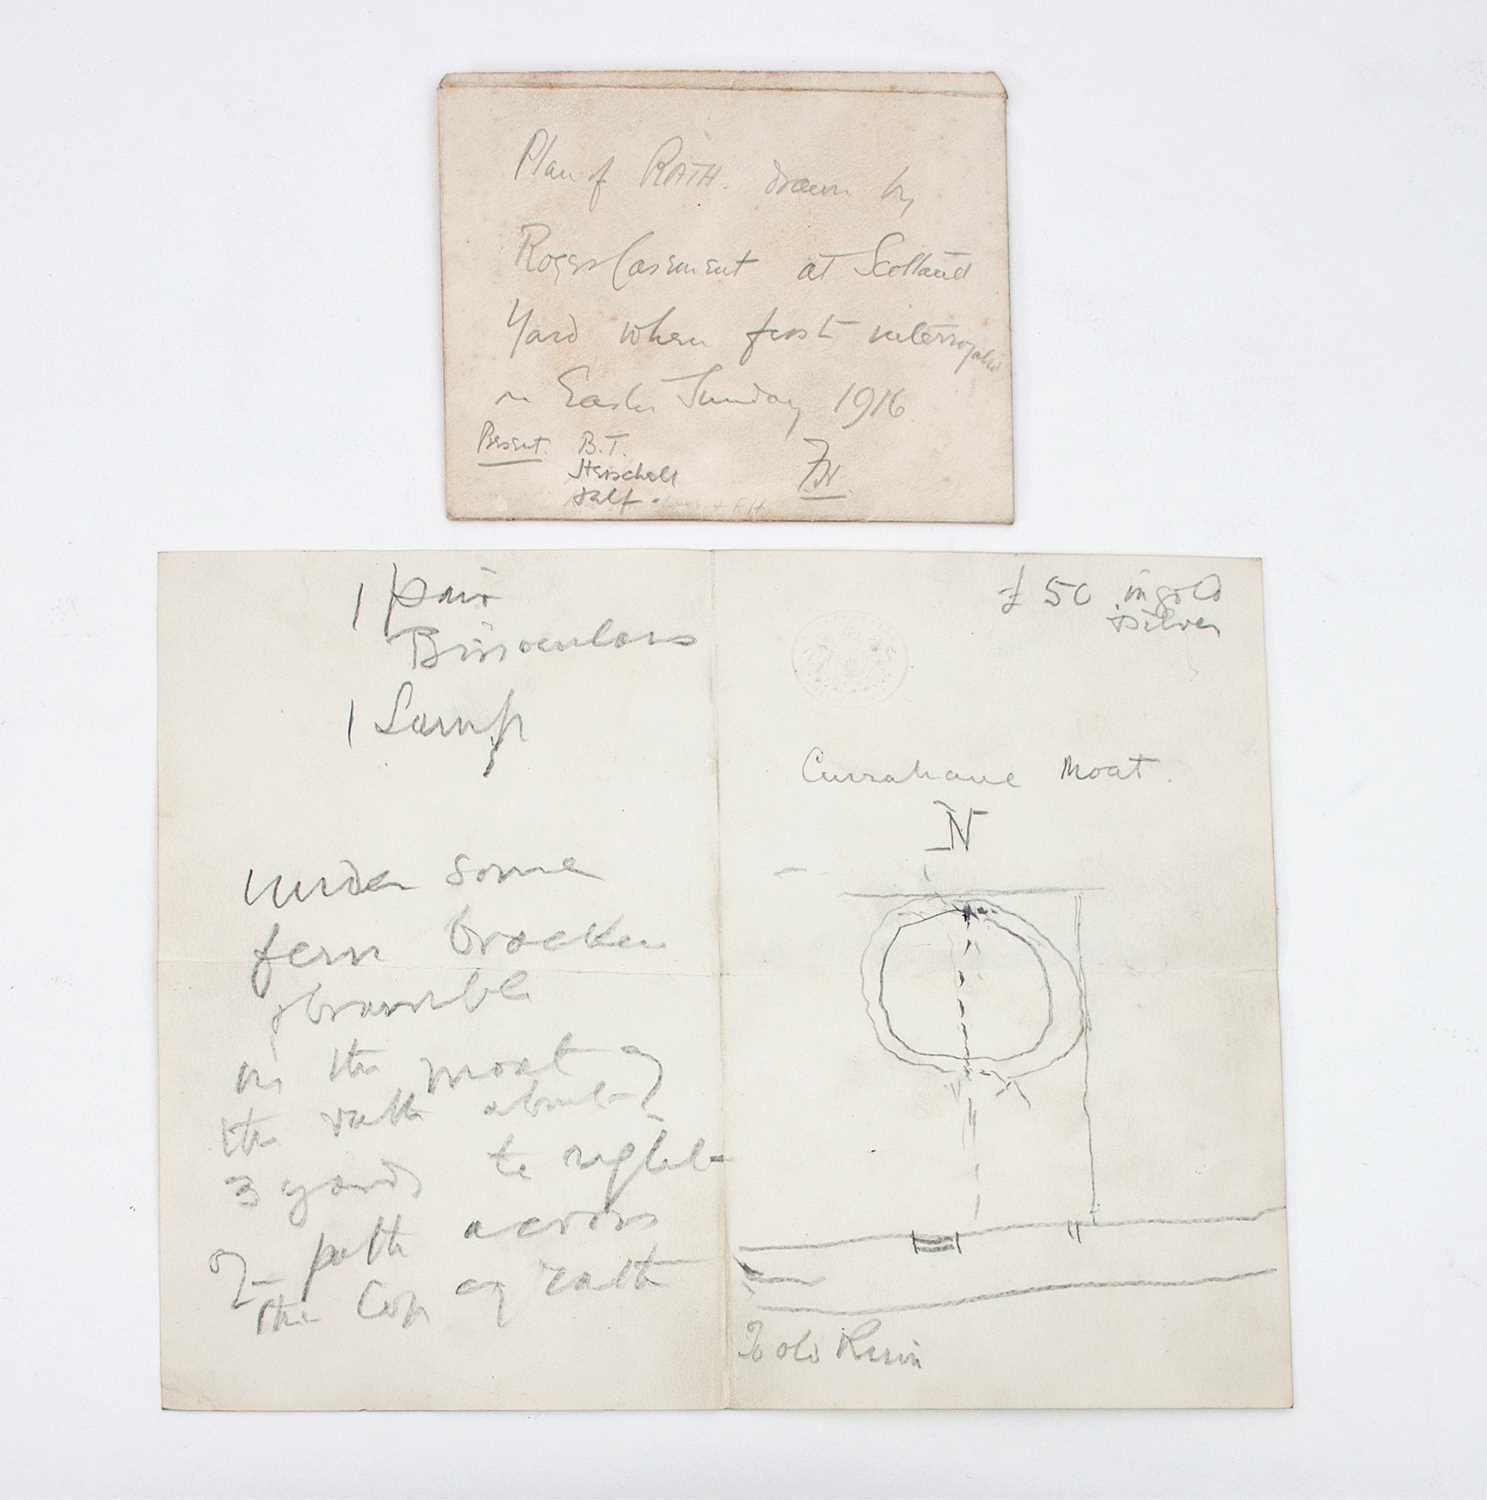 Plan of RATH. drawn by
Roger Casement at Scotland
Yard when first interrogated
on Easter Sunday 1916
Present. B.T.
Herschell
Self.
FH.
1 pair
Binoculars
1 Lamp
under some
fern bracken
& bramble
in the moat of
the rath about
3 yards to right
of path across
the top of rath
£50 in gold
& silver
Currahane Moat.
N
To old Ruin